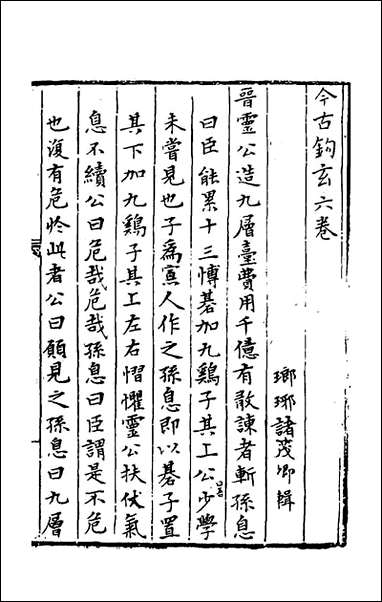 今古鈎玄六卷
瑯琊諸茂卿輯
晉靈公造九層臺費用千億有敢諫者斬孫息
曰臣能累十三博碁加九鷄子其上公少學
未嘗見也子爲寡人作之孫息即以碁子置
其下加九鷄子其上左右慴懼靈公扶伏氣
息不續公曰危哉危哉孫息曰臣謂是不危
也復有危於此者公曰願見之孫息曰九層